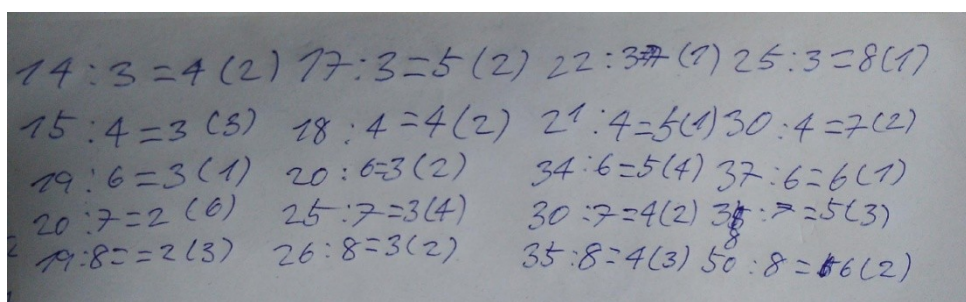 14:3=4(2) 17:3=5(2) 22:3=7(1) 25:3=8(1)
15:4=3(3) 18:4=4(2) 21:4=5(1) 30:4=7(2)
19:6=3(1) 20:6=3(2) 34:6=5(4) 37:6=6(1)
20:7=2(6) 25:7=3(4) 30:7=4(2) 38:7=5(3)
19:8==2(3) 26:8=3(2) 35:8=4(3) 50:8=6(2)